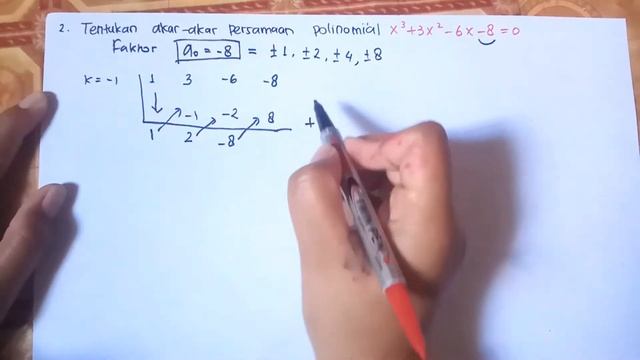 2. Tentukan akar-akar persamaan polinomial x³+3x²-6x-8=0
Faktor a₀=-8 = ±1, ±2, ±4, ±8
k=-1 1 3 -6 -8
-1 -2 8 +
1 2 -8